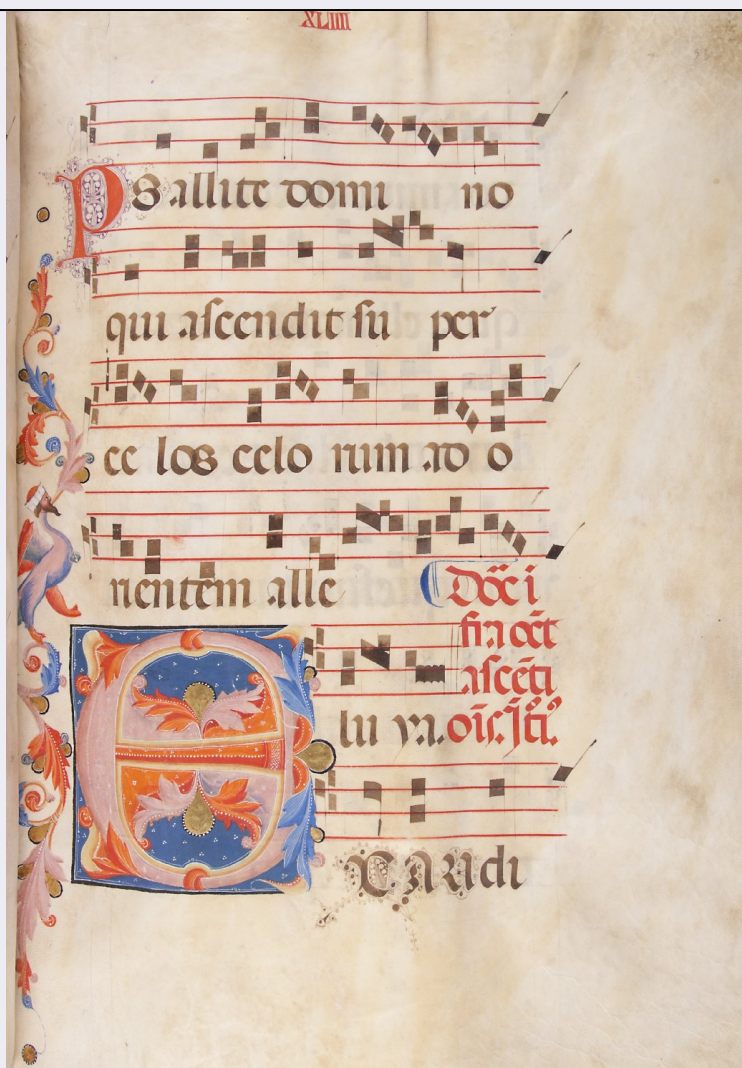 XLIIII
Psallite domi no
qui ascendit su per
ce los celo rum ad o
rientem alle
Dōc i
fra oct̄
ascēti
lu ya. oīs. Īti.
EXAUdi